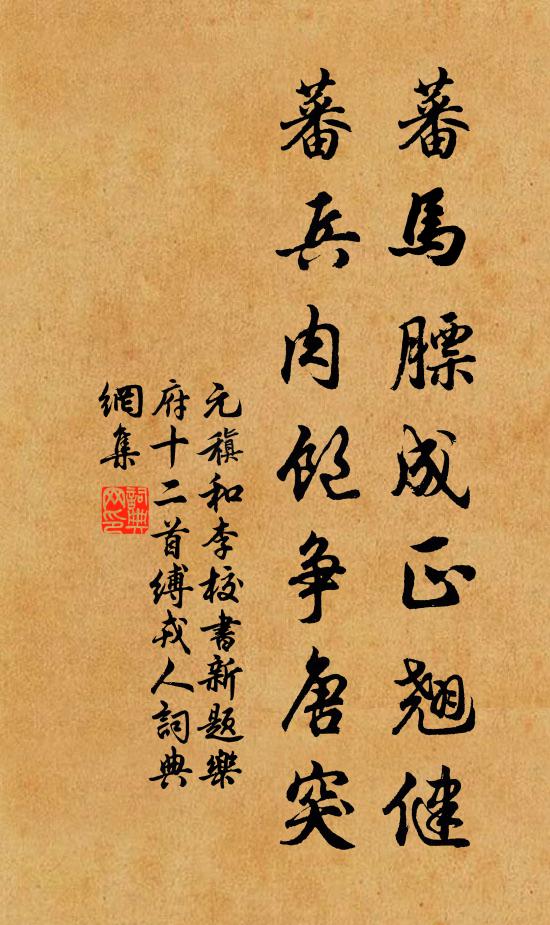 蕃馬膘成正翹健
蕃兵肉飽爭唐突
元稹和李校書新題樂
府十二首縛戎人詞典
網集
詞典網印